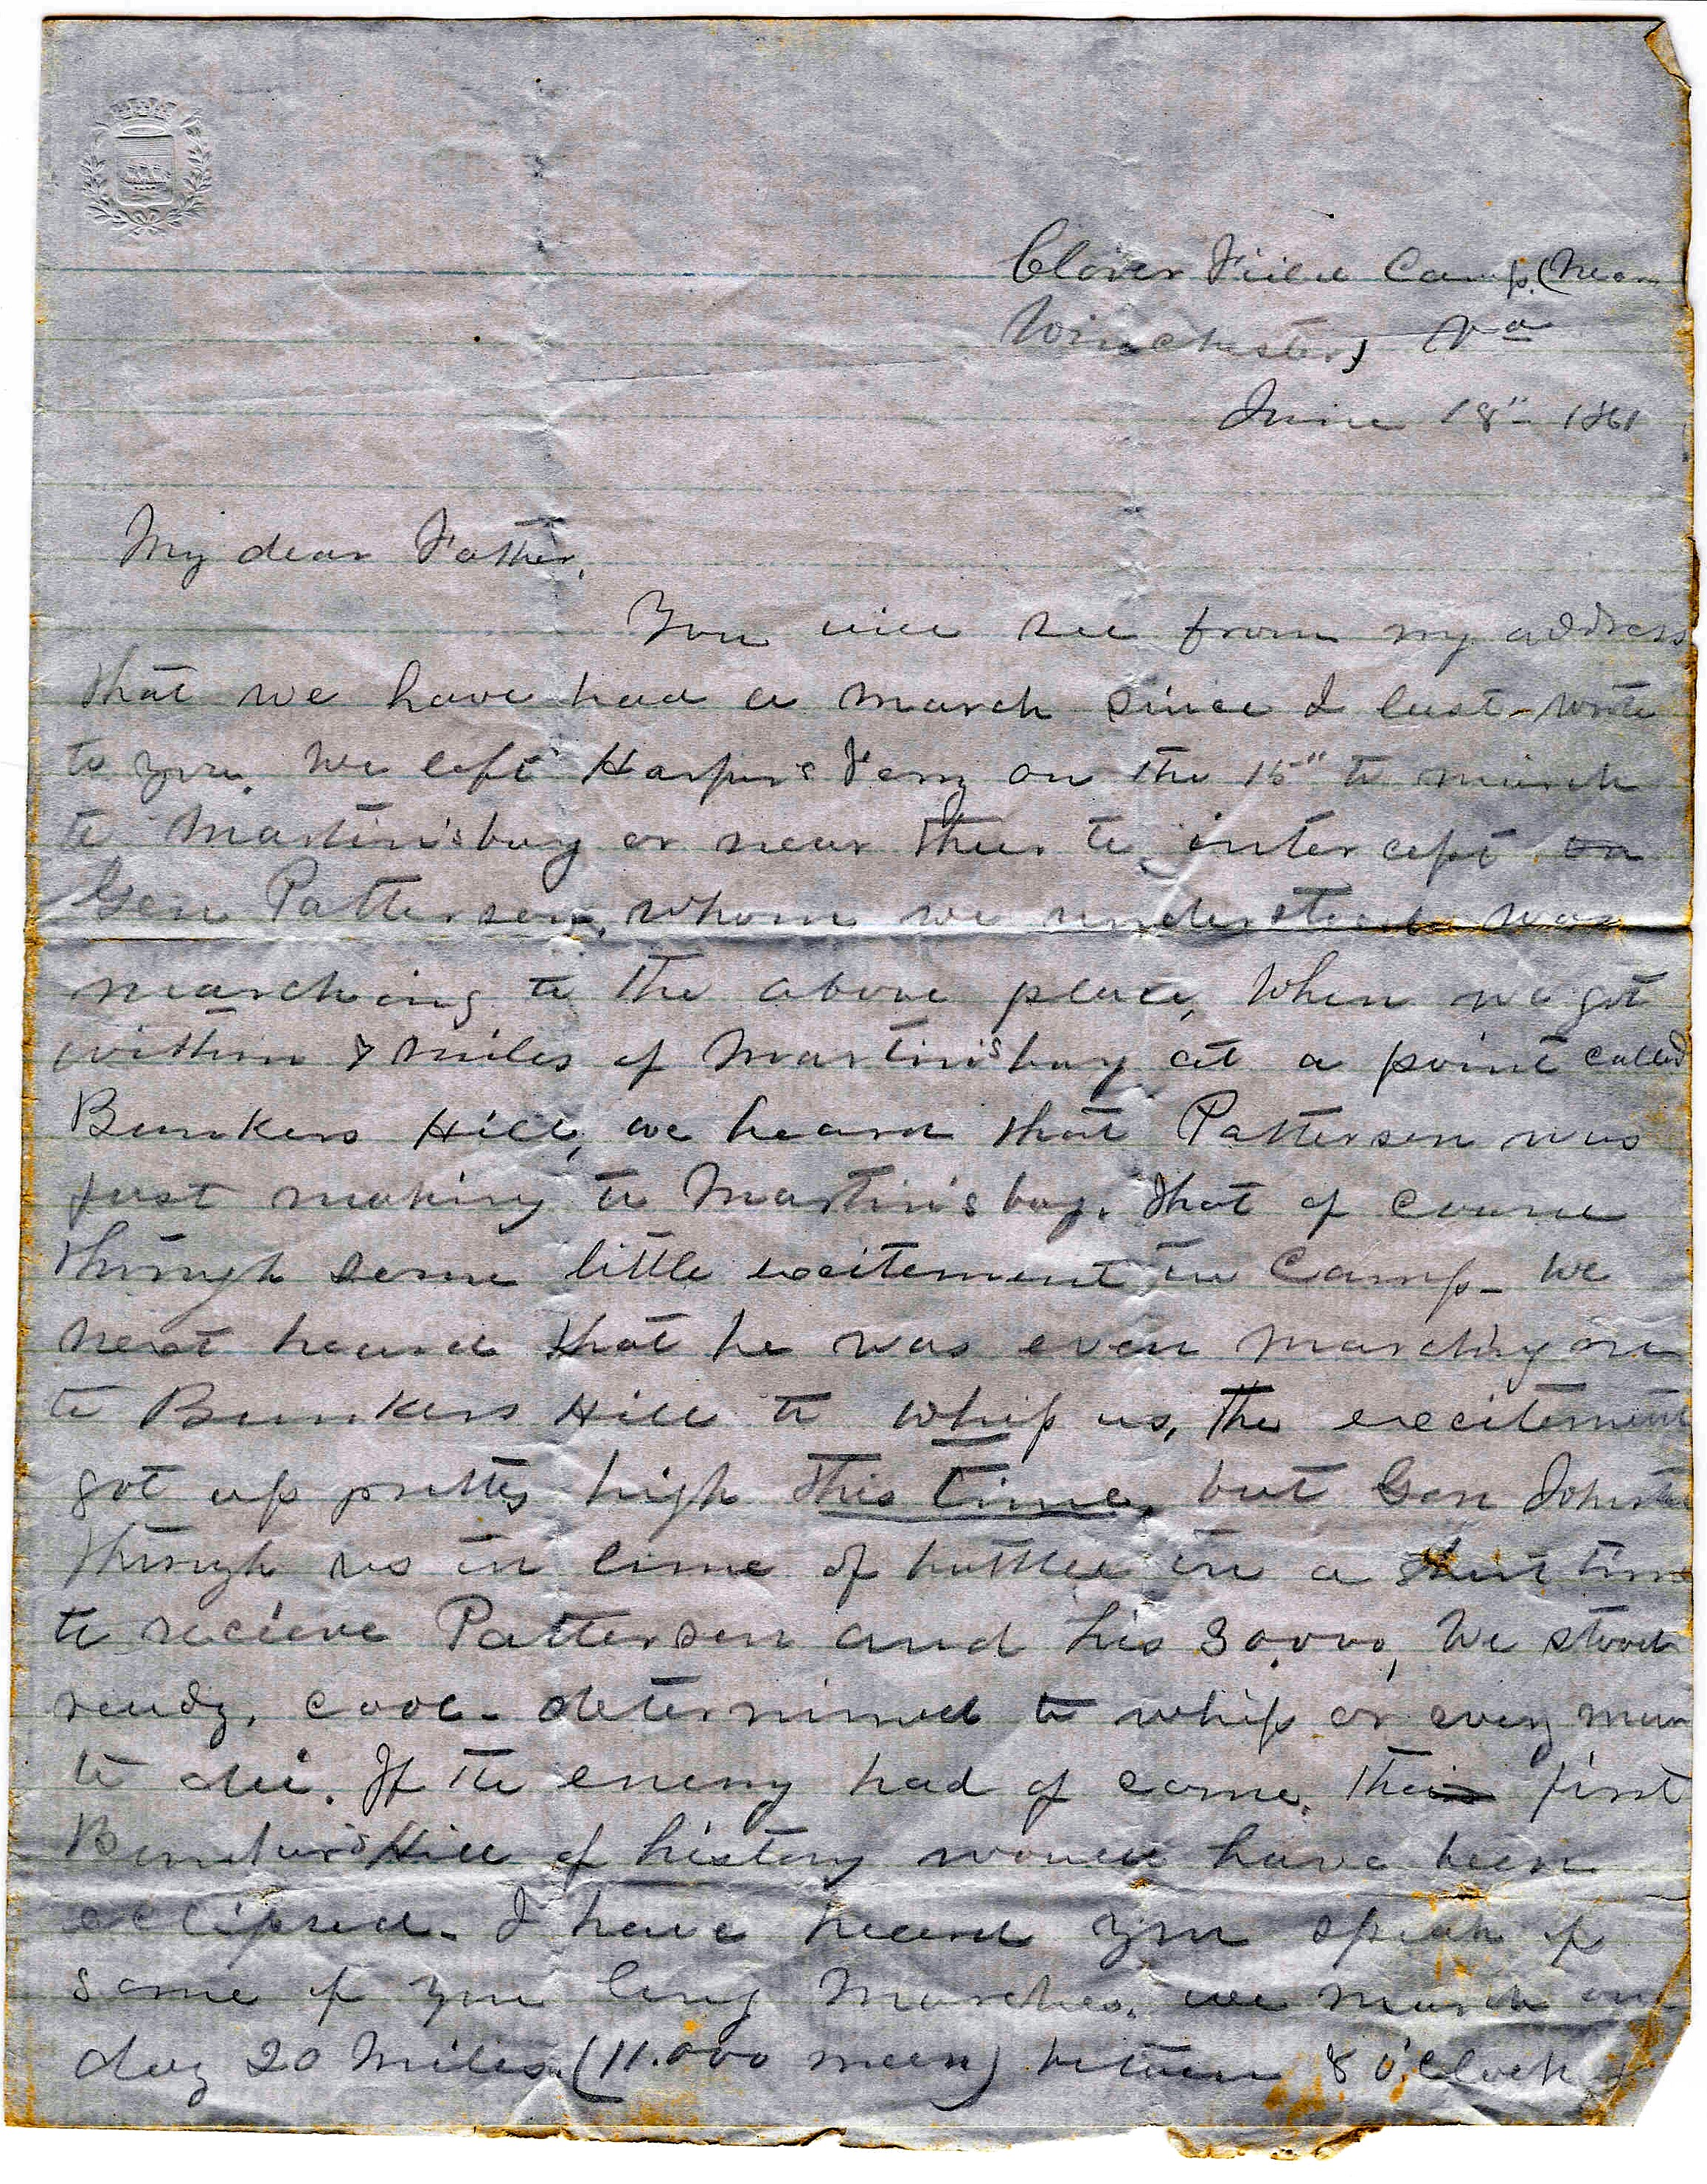 Clover Field Camp, (Near
Winchester, Va
June 18" 1861
My dear Father,
You will see from my address
that we have had a march since I last wrote
to you. We left Harpers Ferry on the 15" to march
to Martin'sburg or near there to intercept on
Gen Patterson, whom we understood was
marching to the above place, When we got
within 8 miles of Martin'sburg at a point called
Bunkers Hill, we heard that Patterson was
fast making to Martin'sburg. That of course
through some little excitement in Camp - We
next heard that he was even marching on
to Bunkers Hill to whip us, The excitement
got up pretty high this time, but Gen Johnston
through us in line of battle in a short time
to recieve Patterson and his 30,000, We stood
ready, cool - determined to whip or every man
to die. If the enemy had of come, the first
Bunkers Hill of history would have been
eclipsed - I have heard you speak of
some of your long Marches, we march one
day 20 Miles (11.000 men) between 8 O'Clock &